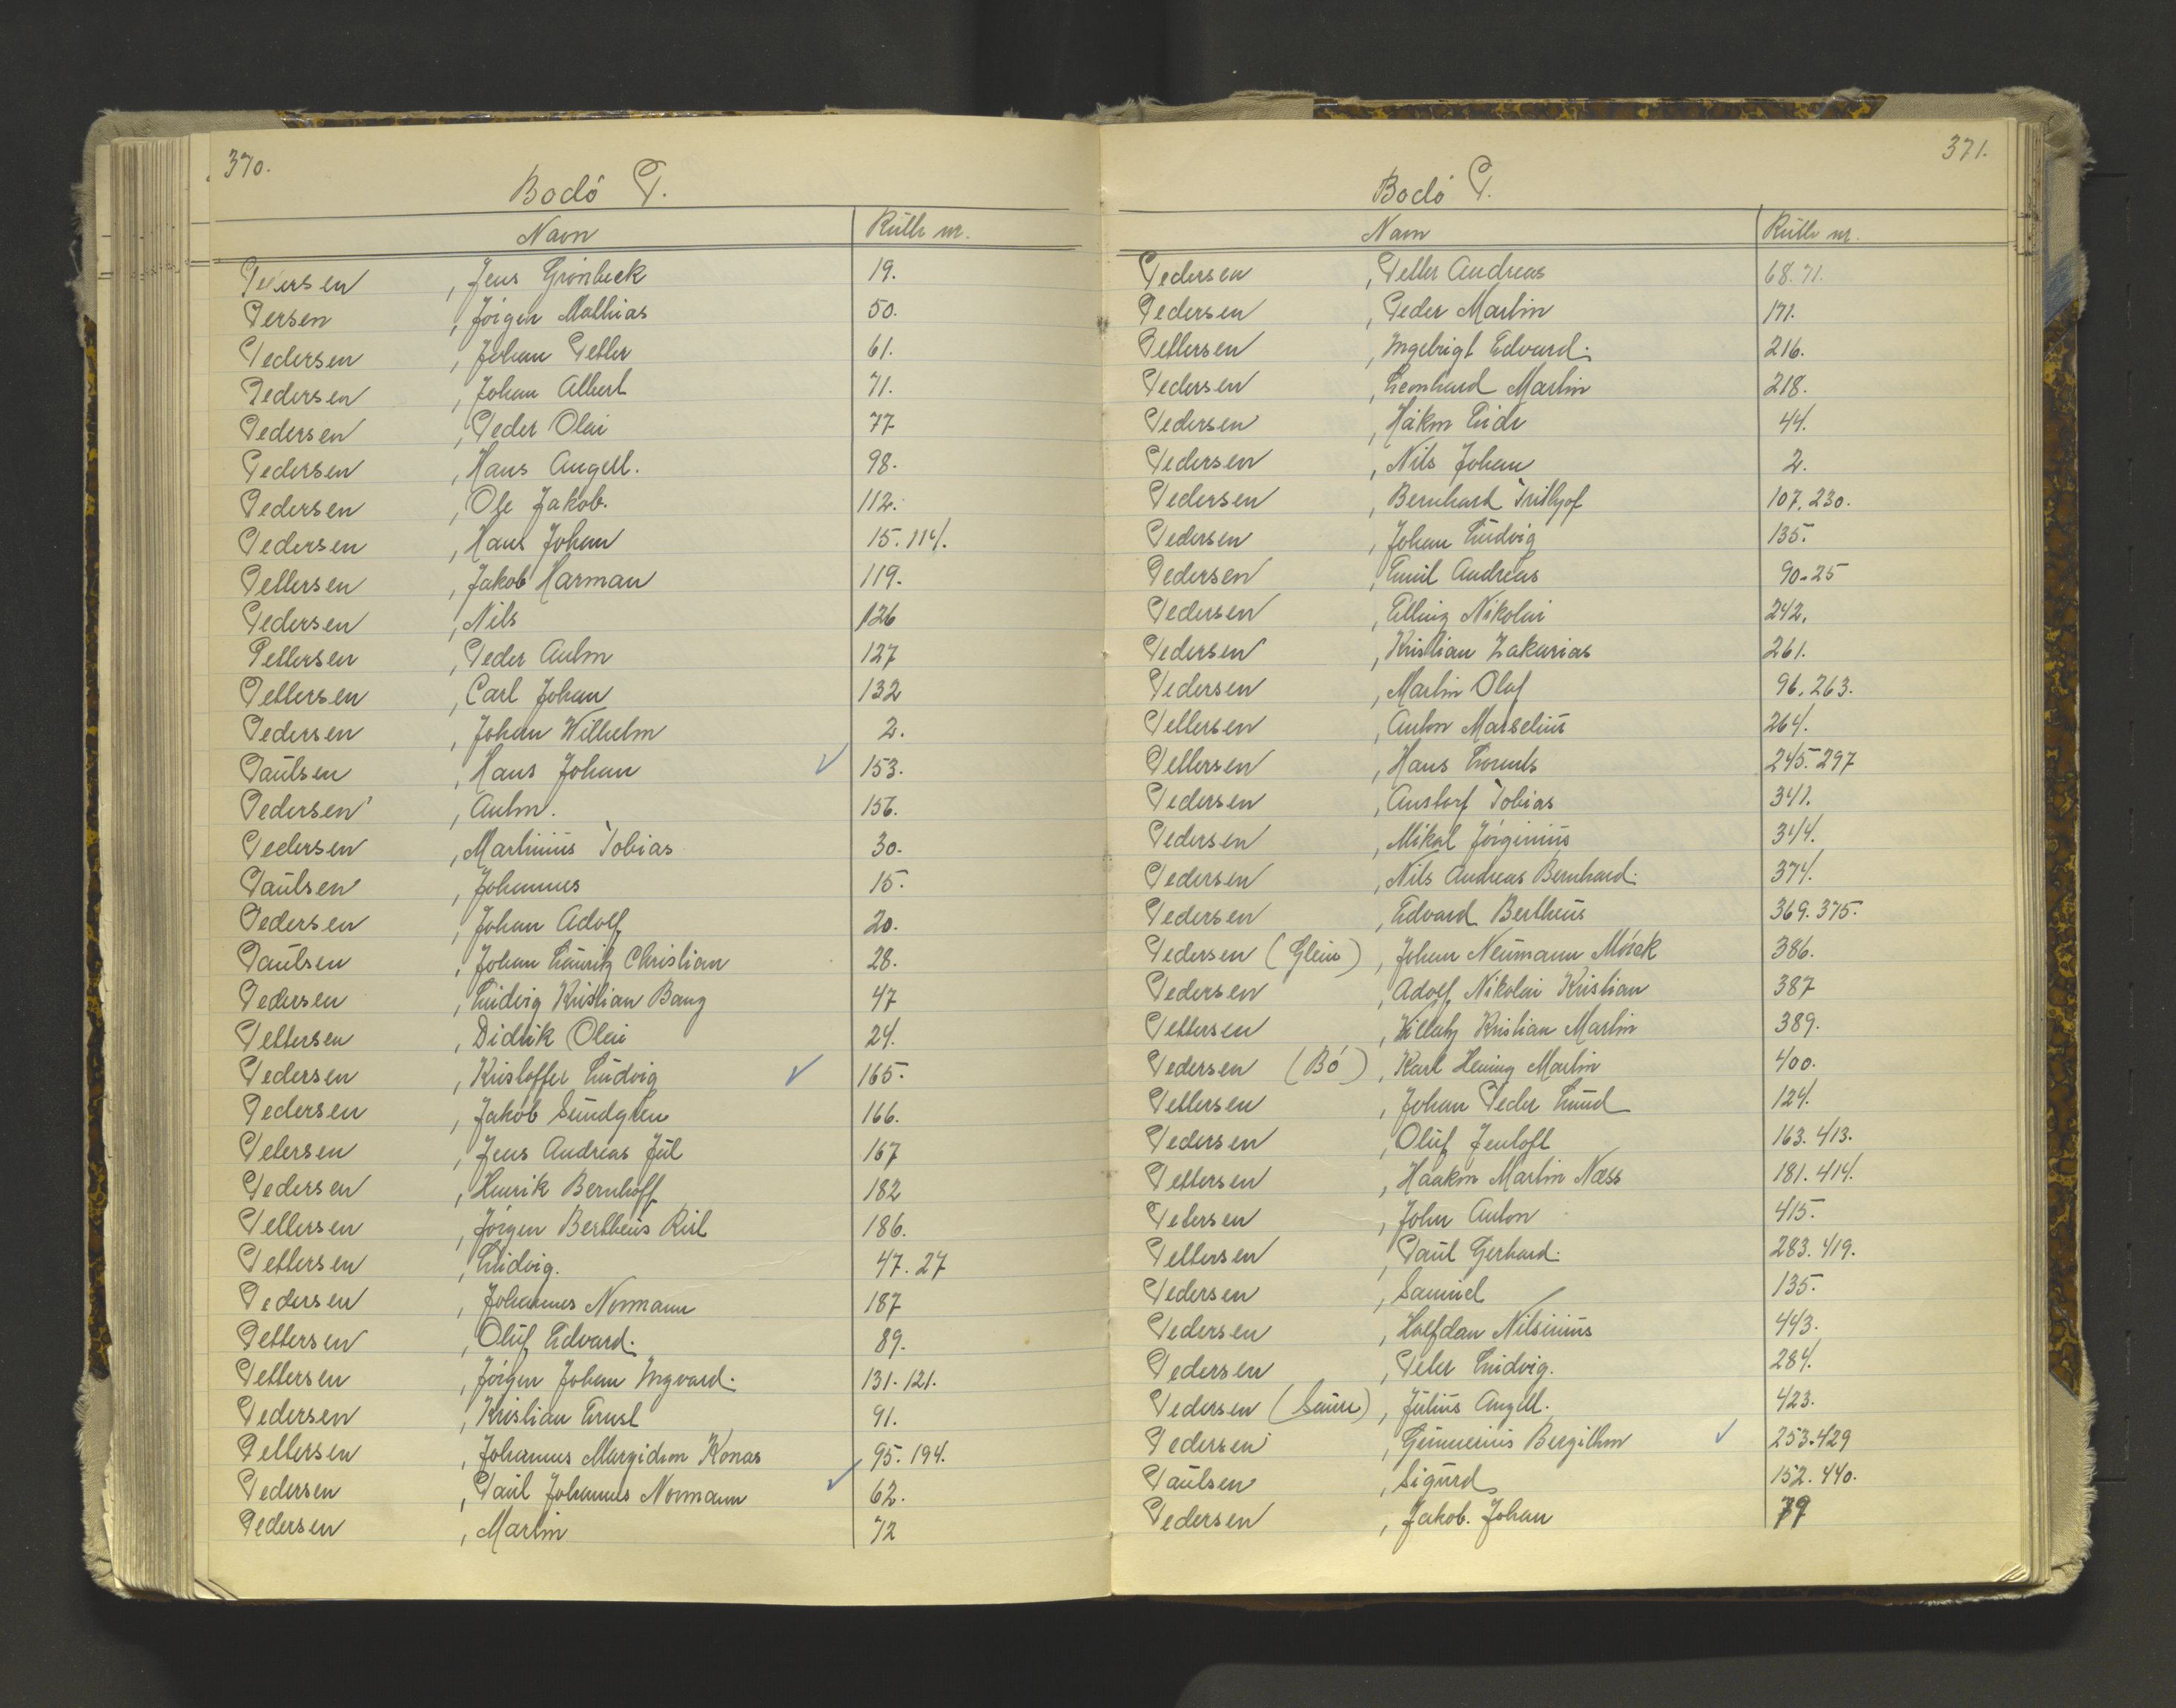 370.
Bodö P.
Navn Rulle nr.
Petersen, Jens Grönbeck 19.
Persen, Jörgen Mathias 50.
Pedersen, Johan Petter 61.
Pedersen, Johan Albert 71.
Pedersen, Peder Olai 77
Pedersen, Hans Angell. 98.
Pedersen, Ole Jakob. 112.
Pedersen, Hans Johan 15. 114.
Pettersen, Jakob Harman 119.
Pedersen, Nils 126
Pettersen, Peder Anton 127
Pettersen, Carl Johan 132
Pedersen, Johan Wilhelm 2.
Paulsen, Hans Johan ✓ 153.
Pedersen, Anton. 156.
Pedersen, Martinius Tobias 30.
Paulsen, Johannes 15.
Pedersen, Johan Adolf 20.
Paulsen, Johan Lauritz Christian 28.
Pedersen, Ludvig Kristian Bang 47
Pettersen, Didrik Olai 24.
Pedersen, Kristoffer Ludvig ✓ 165.
Pedersen, Jakob Sundgren 166.
Petersen, Jens Andreas Jul 167
Pedersen, Henrik Bernhoff 182
Pettersen, Jörgen Bertheus Rist 186.
Pettersen, Ludvig. 47. 27
Pedersen, Johannes Normann 187
Pettersen, Oluf Edvard. 89.
Pettersen, Jörgen Johan Ingvard. 131. 121.
Pedersen, Kristian Ernst 91.
Pettersen, Johannes Margidon Konas 95. 194.
Pedersen, Paul Johannes Normann ✓ 62.
Pedersen, Martin 72
371.
Bodö P.
Navn Rulle nr.
Pedersen, Petter Andreas 68. 71.
Pedersen, Peder Martin 171.
Pettersen, Ingebrigt Edvard. 216.
Pedersen, Leonhard Martin 218.
Pedersen, Håkon Eide 44.
Pedersen, Nils Johan 2.
Pedersen, Bernhard Frithjof 107. 230.
Pedersen, Johan Ludvig 135.
Pedersen, Emil Andreas 90-25
Pedersen, Elling Nikolai 242.
Pedersen, Kristian Zakarias 261.
Pedersen, Martin Olaf 96. 263.
Pettersen, Anton Marselius 264.
Pettersen, Hans Lorents 245. 297
Pedersen, Anstorf Tobias 341.
Pedersen, Mikal Jörginius 344.
Pedersen, Nils Andreas Bernhard. 374.
Pedersen, Edvard Bertheus 369. 375.
Pedersen (Glein), Johan Neumann Mörck 386.
Pedersen, Adolf Nikolai Kristian 387
Pettersen, Kristian Martin 389.
Pedersen (Bö), Karl Hening Martin 400.
Pettersen, Johan Peder Lund 124.
Pedersen, Oluf Jentoft 163. 413.
Pettersen, Haakon Martin Næss 181. 414.
Petersen, John Anton 415.
Pettersen, Paul Gerhard. 283. 419.
Pedersen, Samuel 135.
Pedersen, Halfdan Nilsinius 443.
Pedersen, Peter Ludvig. 284.
Pedersen (Saure), Julius Angell. 423.
Pedersen, Gunnerius Bergithon ✓ 253. 429
Paulsen, Sigurd 152. 440.
Pedersen, Jakob. Johan 79